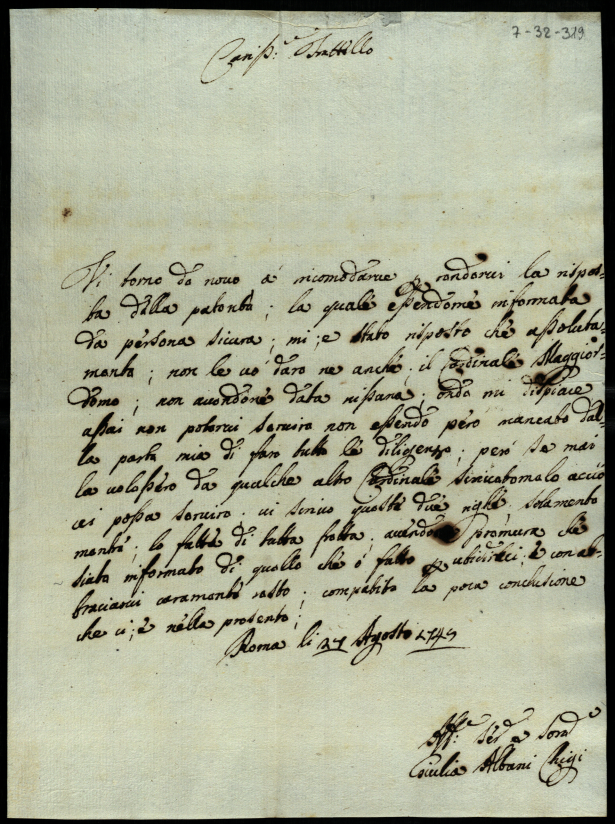 7-32-319
Cariss:e Fratello
Vi torno da novo a ricomodarve p rendervi la rispos-
ta della patenta; la quale essendome informata
da persona sicura; mi; e stato risposto che assoluta-
menta; non le vo daro ne anche; il Cardinale Maggior-
domo; non avendone data nissuna; onde mi dispiace
assai non potervi servire non essendo però mancato dal-
la parta mia di fare tutto le diligenze; però se mai
la volessero da qualche altro Cardinale scrivetemelo acciò
vi possa servire. vi scrivo queste due righe solamente
mente; lo fatte di tutta fretta; avendo premura che
siate informato di quello che o fatto p ubidirvi; e con ab-
braciarvi caramente resto; compatite la poca conclusione
che ci; è nella presente;
Roma li 27 Agosto 1747
Aff:e Ser:e e Sore
Giulia Albani Chigi